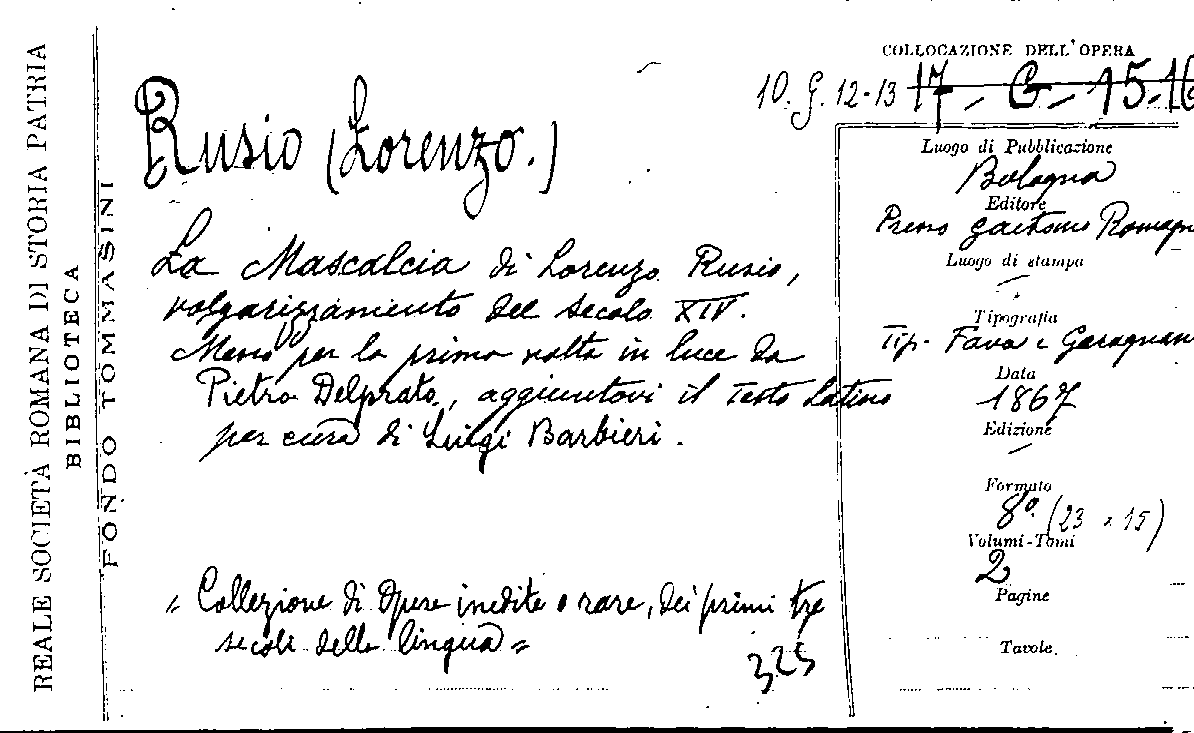 REALE SOCIETÀ ROMANA DI STORIA PATRIA
BIBLIOTECA
FONDO TOMMASINI
COLLOCAZIONE DELL'OPERA
10. G. 12-13 17 - G - 15-16
Rusio (Lorenzo.)
La Mascalcia di Lorenzo Rusio,
volgarizzamento del secolo XIV.
Messo per la prima volta in luce da
Pietro Delprato, aggiuntovi il testo Latino
per cura di Luigi Barbieri.
"Collezione di Opere inedite o rare, dei primi tre
secoli della lingua"
325
Luogo di Pubblicazione
Bologna
Editore
Presso Gaetano Romagn
Luogo di stampa
Tipografia
Tip. Fava e Garagnan
Data
1867
Edizione
Formato
8° (23 x 15)
Volumi-Tomi
2
Pagine
Tavole.